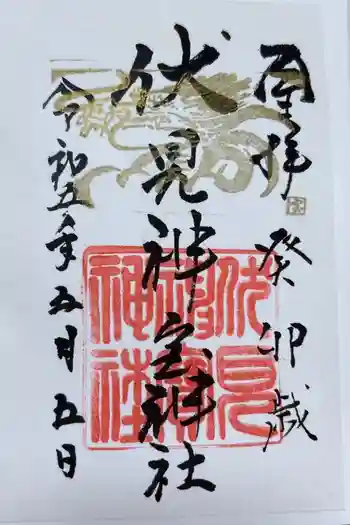 奉拝
癸卯歳
伏見神宝神社
伏見神宝神社
令和五年五月五日